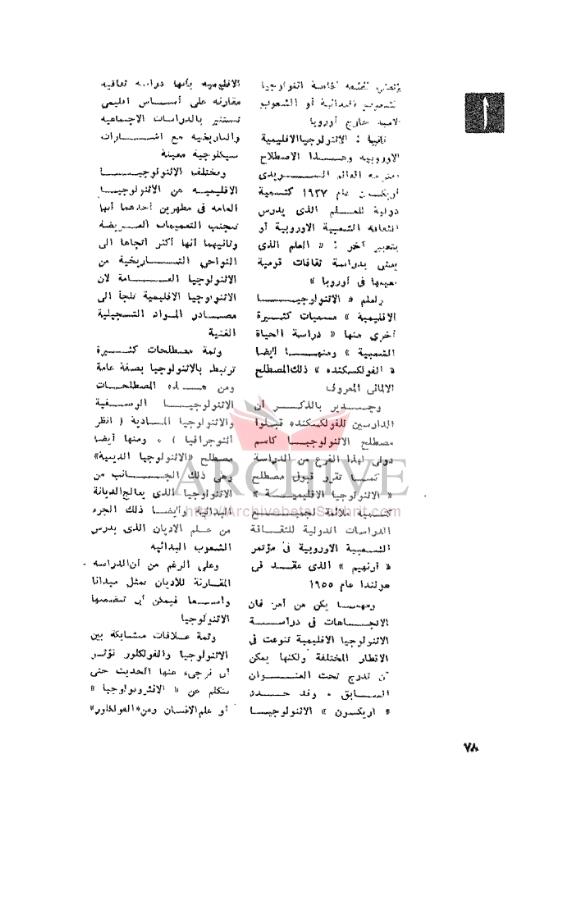 أ
بالشعوب البدائية أو الشعوب
خارج أوروبا
ثانيا : الاثنولوجيا الاقليمية
الاوروبية وهذا الاصطلاح
العالم السويدى
أريكسون عام ١٩٣٧ كتسمية
دولية للعلم الذى يدرس
الثقافة الشعبية الاوروبية أو
بتعبير آخر : « العلم الذى
يعنى بدراسة ثقافات قومية
بعينها فى أوروبا »
ولعلم « الاثنولوجيا
الاقليمية » مسميات كثيرة
أخرى منها « دراسة الحياة
الشعبية » ومنها أيضا
« الفولكسكنده » ذلك المصطلح
الالمانى المعروف
وجدير بالذكر أن
الدارسين للفولكسكنده قبلوا
مصطلح الاثنولوجيا كاسم
دولى لهذا الفرع من الدراسة
كما تقرر قبول مصطلح
« الاثنولوجيا الاقليمية »
كتسمية ملائمة لجميع
الدراسات الدولية للثقافة
الشعبية الاوروبية فى مؤتمر
« أرنهيم » الذى عقد فى
هولندا عام ١٩٥٥
ومهما يكن من أمر فان
الاتجاهات فى دراسة
الاثنولوجيا الاقليمية تنوعت فى
الاقطار المختلفة ولكنها يمكن
أن تندرج تحت العنوان
السابق . وقد حدد
« اريكسون » الاثنولوجيا
الاقليمية بأنها دراسة ثقافية
مقارنة على أساس اقليمى
تستنير بالدراسات الاجتماعية
والتاريخية مع اشارات
سيكلوجية معينة
وتختلف الاثنولوجيا
الاقليمية عن الاثنولوجيا
العامة فى مظهرين أحدهما أنها
تتجنب التعميمات العريضة
وثانيهما أنها أكثر اتجاها الى
النواحى التاريخية من
الاثنولوجيا العامة لان
الاثنولوجيا الاقليمية تلجأ الى
مصادر المواد التسجيلية
الغنية
وثمة مصطلحات كثيرة
ترتبط بالاثنولوجيا بصفة عامة
ومن هذه المصطلحات
الاثنولوجيا الوصفية
والاثنولوجيا المادية ( انظر
اثنوجرافيا ) . ومنها أيضا
مصطلح «الاثنولوجيا الدينية»
وهى ذلك الجانب من
الاثنولوجيا الذى يعالج الديانة
البدائية وأيضا ذلك الجزء
من علم الاديان الذى يدرس
الشعوب البدائية
وعلى الرغم من أن الدراسة
المقارنة للاديان تمثل ميدانا
واسعا فيمكن أن تتضمنها
الاثنولوجيا
وثمة علاقات متشابكة بين
الاثنولوجيا والفولكلور نؤثر
أن نرجىء عنها الحديث حتى
نتكلم عن « الانثروبولوجيا »
أو علم الانسان وعن «الفولكلور»
ARCHIVE
http://Archivebeta.Sakhrit.com
٧٨